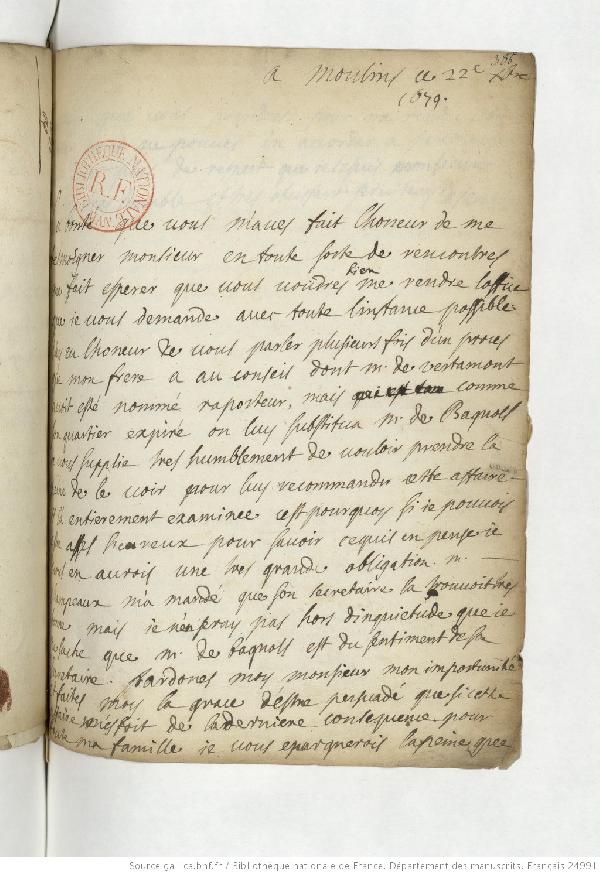 386
a moulins ce 22e xbre
1679.
BIBLIOTHEQUE NATIONALE
R.F.
MAN
bonté que vous m'aues fait lhoneur de me
tesmoigner monsieur en toute sorte de rencontres
me fait esperer que vous voudres bien me rendre loffice
que ie vous demande auec toute linstance possible
eu lhoneur de vous parler plusieurs fois dun proces
que mon frere a au conseil dont mr de vertamont
auoit esté nommé raporteur, mais comme
son quartier expiré on luy substitua mr de Bagnols
ie vous supplie tres humblement de vouloir prendre la
peine de le voir pour luy recommander cette affaire
entierement examinee cest pourquoy si ie pouvois
estre asses heureux pour savoir ce quil en pense ie
vous en aurois une tres grande obligation. mr
m'a mandé que son secretaire la trouvoit tres
bonne mais ie n'en seray pas hors dinquietude que ie
ne sache que mr de bagnols est du sentiment de son
secretaire. Pardones moy monsieur mon importunité
et faites moy la grace destre persuadé que si cette
affaire n'estoit de la derniere consequence pour
toute ma famille ie vous epargnerois la peine que
Source gallica.bnf.fr / Bibliothèque nationale de France. Département des manuscrits. Français 24991